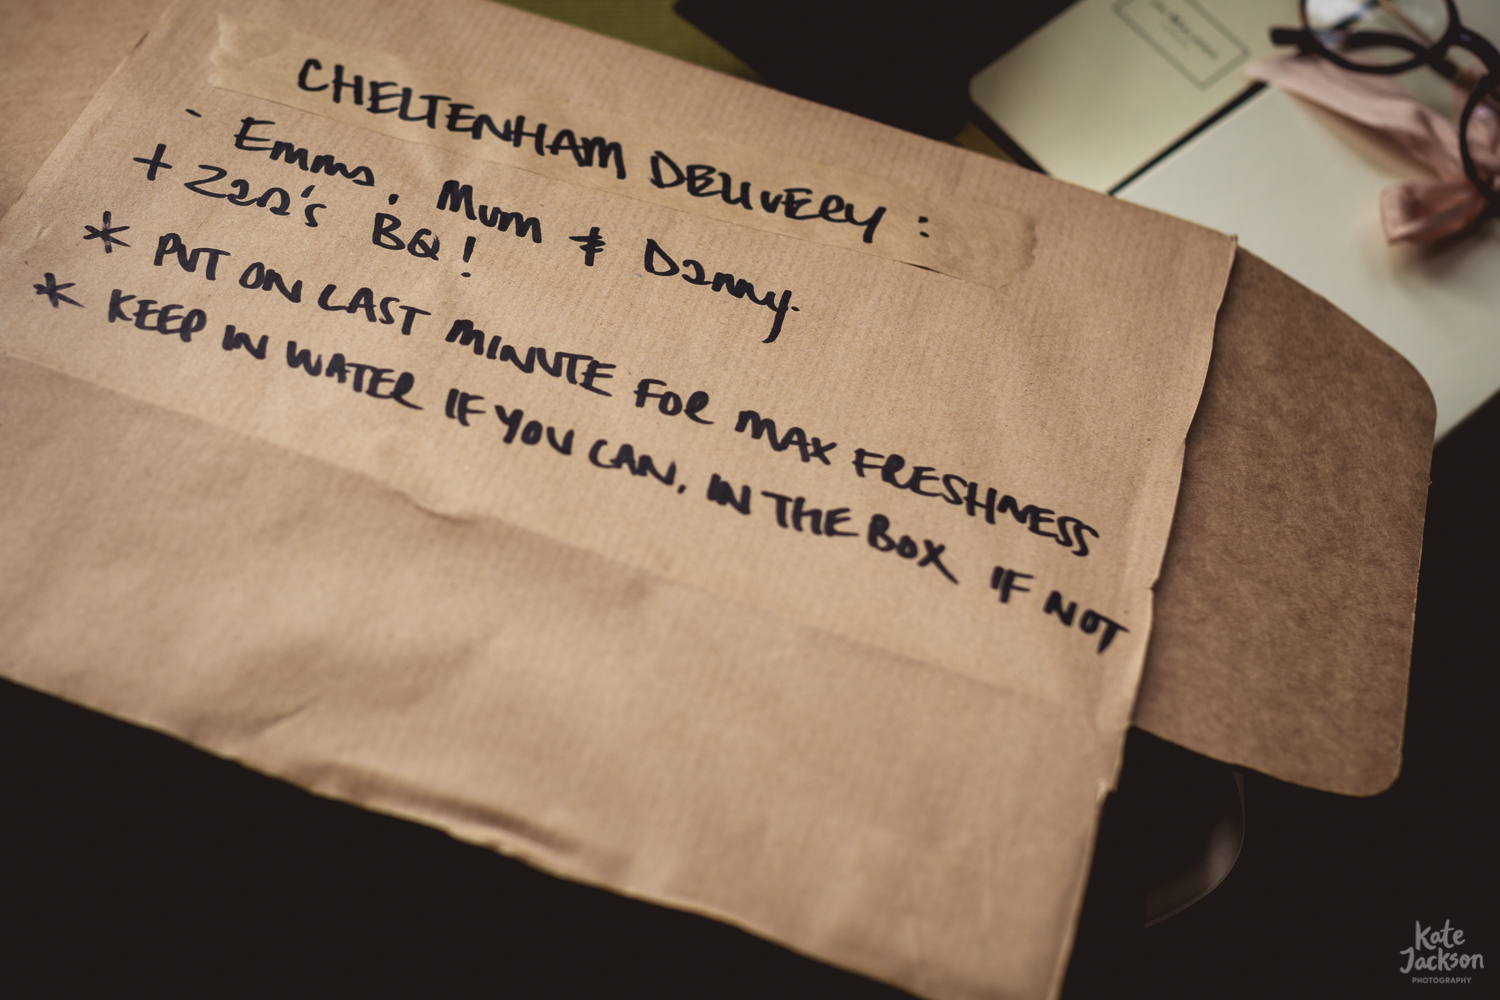 CHELTENHAM DELIVERY :
- Emma, Mum & Danny.
+ Zara's BQ!
* PUT ON LAST MINUTE FOR MAX FRESHNESS
* KEEP IN WATER IF YOU CAN, IN THE BOX IF NOT
Kate
Jackson
PHOTOGRAPHY